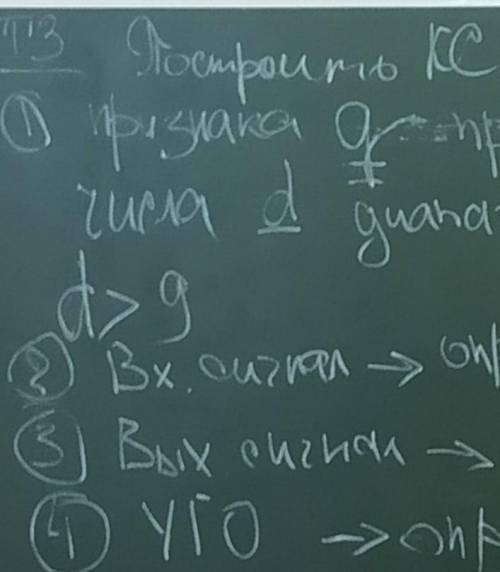 ТЗ Построить КС
① признака
числа d диапа
d > 9
② Вх. сигнал → опр
③ Вых сигнал →
④ УГО → опр